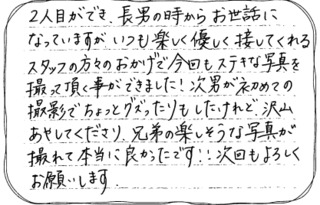 2人目ができ、長男の時からお世話に
なっていますが、いつも楽しく優しく接してくれる
スタッフの方々のおかげで今回もステキな写真を
撮って頂く事ができました！次男が初めての
撮影でちょっとグズったりもしたけれど、沢山
あやしてくださり、兄弟の楽しそうな写真が
撮れて本当に良かったです！！次回もよろしく
お願いします。